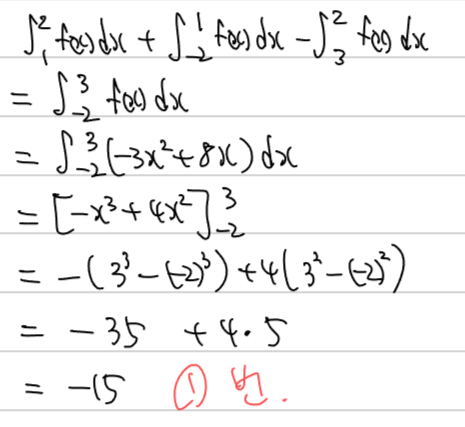 ∫₁² f(x) dx + ∫₋₂¹ f(x) dx - ∫₃² f(x) dx
= ∫₋₂³ f(x) dx
= ∫₋₂³ (-3x²+8x) dx
= [-x³+4x²]₋₂³
= -(3³-(-2)³)+4(3²-(-2)²)
= -35 +4·5
= -15 ① 번.